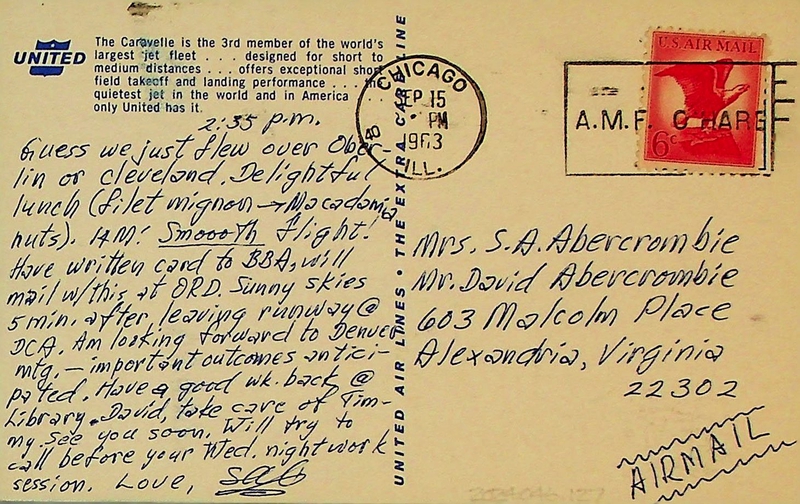 UNITED
The Caravelle is the 3rd member of the world's
largest jet fleet . . . designed for short to
medium distances . . . offers exceptional short
field takeoff and landing performance . . . the
quietest jet in the world and in America . . .
only United has it.
2:35 p.m.
Guess we just flew over Ober-
lin or cleveland. Delightful
lunch (filet mignon → Macadamia
nuts). 1AM! Smoooth flight!
Have written card to BBA, will
mail w/this, at ORD. Sunny skies
5 min. after leaving runway @
DCA. Am looking forward to Denver
mtg. — important outcomes antici-
pated. Have a good wk. back @
Library. David, take care of Tim-
my. See you soon. Will try to
call before your Wed. night work
session. Love, SAA
UNITED AIR LINES • THE EXTRA CARE LINE
CHICAGO
SEP 15
PM
1963
ILL.
A.M.F. O HARE
U.S. AIR MAIL
6c
Mrs. S.A. Abercrombie
Mr. David Abercrombie
603 Malcolm Place
Alexandria, Virginia
22302
AIRMAIL